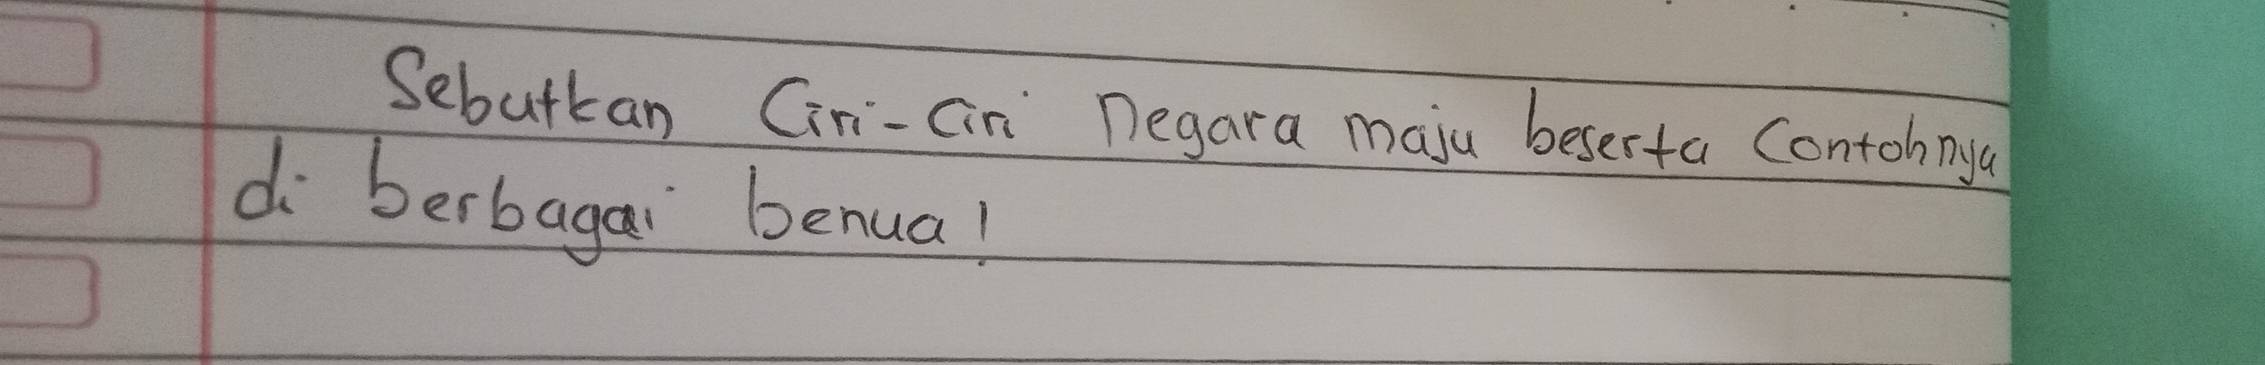 Sebutkan Ciri-Ciri negara maju beserta Contohnya
di berbagai benua!